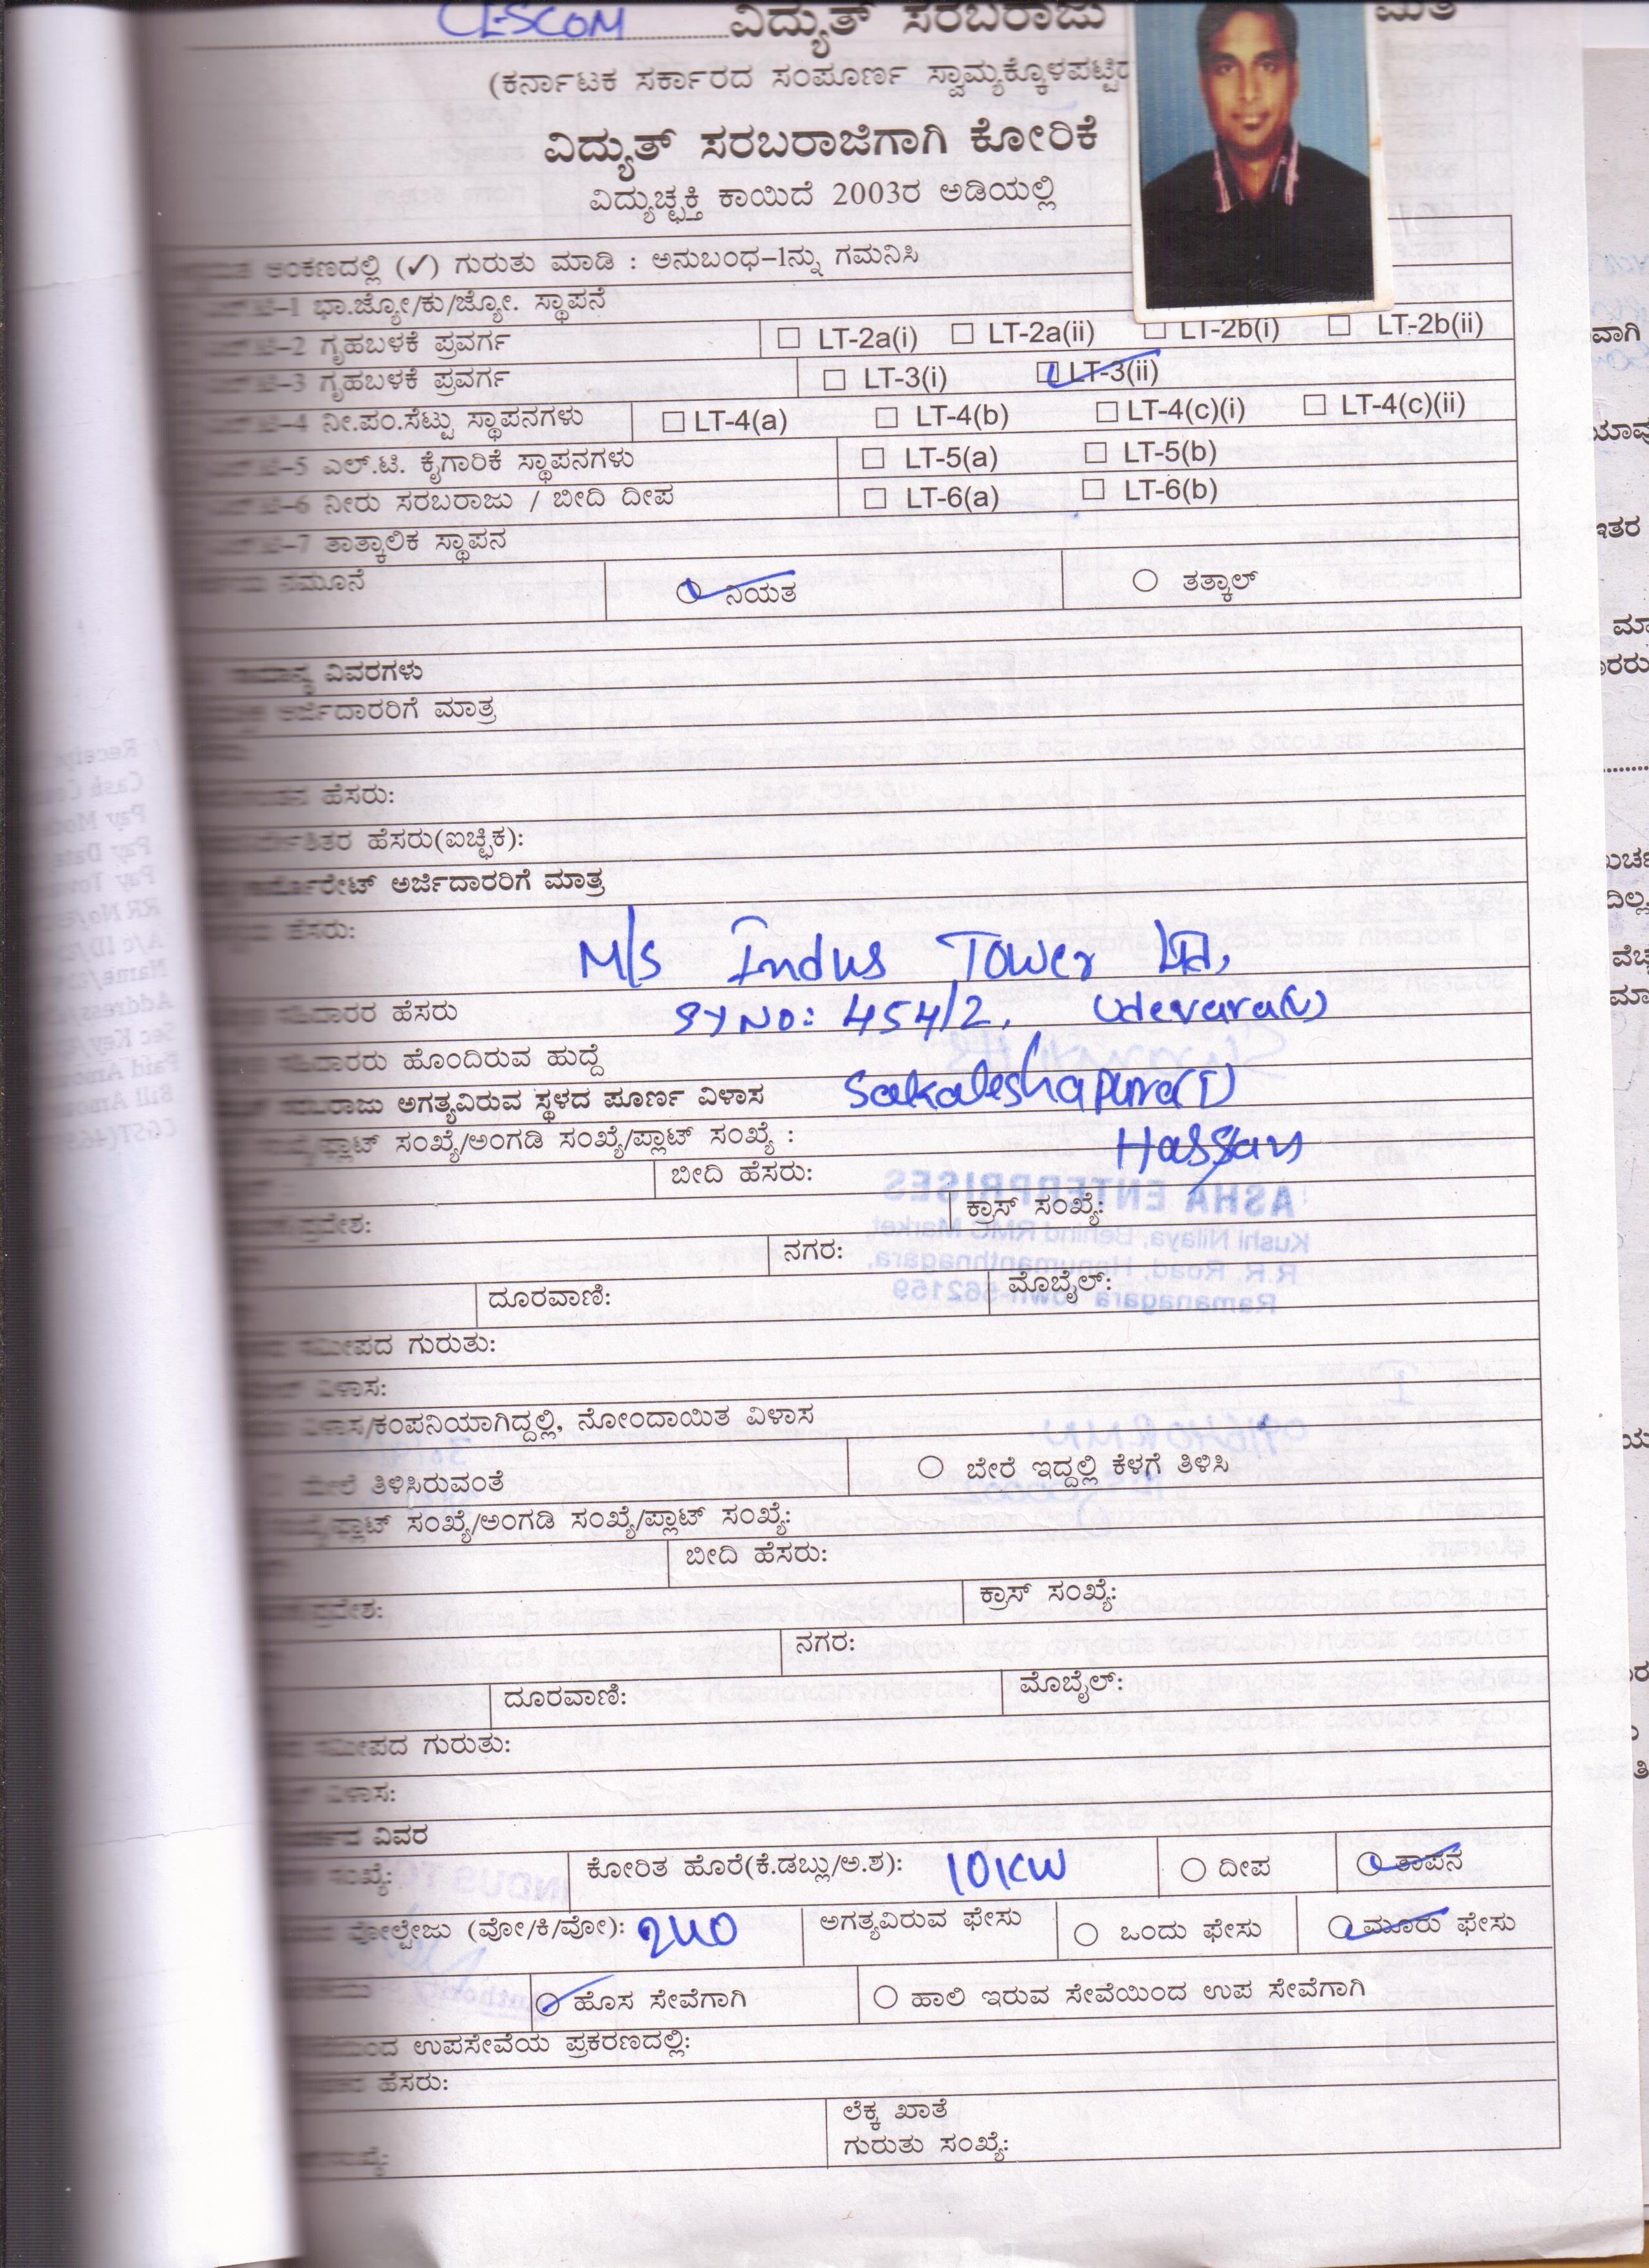 CESCOM ವಿದ್ಯುತ್ ಸರಬರಾಜು
(ಕರ್ನಾಟಕ ಸರ್ಕಾರದ ಸಂಪೂರ್ಣ ಸ್ವಾಮ್ಯಕ್ಕೊಳಪಟ್ಟಿದ
ವಿದ್ಯುತ್ ಸರಬರಾಜಿಗಾಗಿ ಕೋರಿಕೆ
ವಿದ್ಯುಚ್ಛಕ್ತಿ ಕಾಯಿದೆ 2003ರ ಅಡಿಯಲ್ಲಿ
ಅಂಕಣದಲ್ಲಿ (✓) ಗುರುತು ಮಾಡಿ : ಅನುಬಂಧ-1ನ್ನು ಗಮನಿಸಿ
-1 ಭಾ.ಜ್ಯೋ/ಕು/ಜ್ಯೋ. ಸ್ಥಾಪನೆ
-2 ಗೃಹಬಳಕೆ ಪ್ರವರ್ಗ ☐ LT-2a(i) ☐ LT-2a(ii) ☐ LT-2b(i) ☐ LT-2b(ii)
-3 ಗೃಹಬಳಕೆ ಪ್ರವರ್ಗ ☐ LT-3(i) ☐ LT-3(ii)
-4 ನೀ.ಪಂ.ಸೆಟ್ಟು ಸ್ಥಾಪನಗಳು ☐ LT-4(a) ☐ LT-4(b) ☐ LT-4(c)(i) ☐ LT-4(c)(ii)
-5 ಎಲ್.ಟಿ. ಕೈಗಾರಿಕೆ ಸ್ಥಾಪನಗಳು ☐ LT-5(a) ☐ LT-5(b)
-6 ನೀರು ಸರಬರಾಜು / ಬೀದಿ ದೀಪ ☐ LT-6(a) ☐ LT-6(b)
-7 ತಾತ್ಕಾಲಿಕ ಸ್ಥಾಪನ
ನಮೂನೆ ನಿಯತ ತತ್ಕಾಲ್
ವಿವರಗಳು
ಅರ್ಜಿದಾರರಿಗೆ ಮಾತ್ರ
ಹೆಸರು:
ಹೆಸರು(ಐಚ್ಛಿಕ):
ಅರ್ಜಿದಾರರಿಗೆ ಮಾತ್ರ
ಹೆಸರು:
M/s Indus Tower Ltd,
ಹೆಸರು SY No: 454/2, Udevara(V)
ಹೊಂದಿರುವ ಹುದ್ದೆ
ಅಗತ್ಯವಿರುವ ಸ್ಥಳದ ಪೂರ್ಣ ವಿಳಾಸ Sakaleshapura(T)
ಸಂಖ್ಯೆ/ಅಂಗಡಿ ಸಂಖ್ಯೆ/ಪ್ಲಾಟ್ ಸಂಖ್ಯೆ : Hassan
ಬೀದಿ ಹೆಸರು:
ಪ್ರದೇಶ: ಕ್ರಾಸ್ ಸಂಖ್ಯೆ:
ನಗರ:
ದೂರವಾಣಿ: ಮೊಬೈಲ್:
ಸಮೀಪದ ಗುರುತು:
ವಿಳಾಸ:
ವಿಳಾಸ/ಕಂಪನಿಯಾಗಿದ್ದಲ್ಲಿ, ನೋಂದಾಯಿತ ವಿಳಾಸ
ಮೇಲೆ ತಿಳಿಸಿರುವಂತೆ ಬೇರೆ ಇದ್ದಲ್ಲಿ ಕೆಳಗೆ ತಿಳಿಸಿ
ಸಂಖ್ಯೆ/ಅಂಗಡಿ ಸಂಖ್ಯೆ/ಪ್ಲಾಟ್ ಸಂಖ್ಯೆ:
ಬೀದಿ ಹೆಸರು:
ಪ್ರದೇಶ: ಕ್ರಾಸ್ ಸಂಖ್ಯೆ:
ನಗರ:
ದೂರವಾಣಿ: ಮೊಬೈಲ್:
ಸಮೀಪದ ಗುರುತು:
ವಿಳಾಸ:
ವಿವರ
ಸಂಖ್ಯೆ: ಕೋರಿತ ಹೊರೆ(ಕೆ.ಡಬ್ಲ್ಯು/ಅ.ಶ): 10KW ದೀಪ ತಾಪನ
ವೋಲ್ಟೇಜು (ವೋ/ಕಿ/ವೋ): 240 ಅಗತ್ಯವಿರುವ ಫೇಸು ಒಂದು ಫೇಸು ಮೂರು ಫೇಸು
ಹೊಸ ಸೇವೆಗಾಗಿ ಹಾಲಿ ಇರುವ ಸೇವೆಯಿಂದ ಉಪ ಸೇವೆಗಾಗಿ
ಉಪಸೇವೆಯ ಪ್ರಕರಣದಲ್ಲಿ:
ಹೆಸರು:
ಲೆಕ್ಕ ಖಾತೆ
ಗುರುತು ಸಂಖ್ಯೆ: